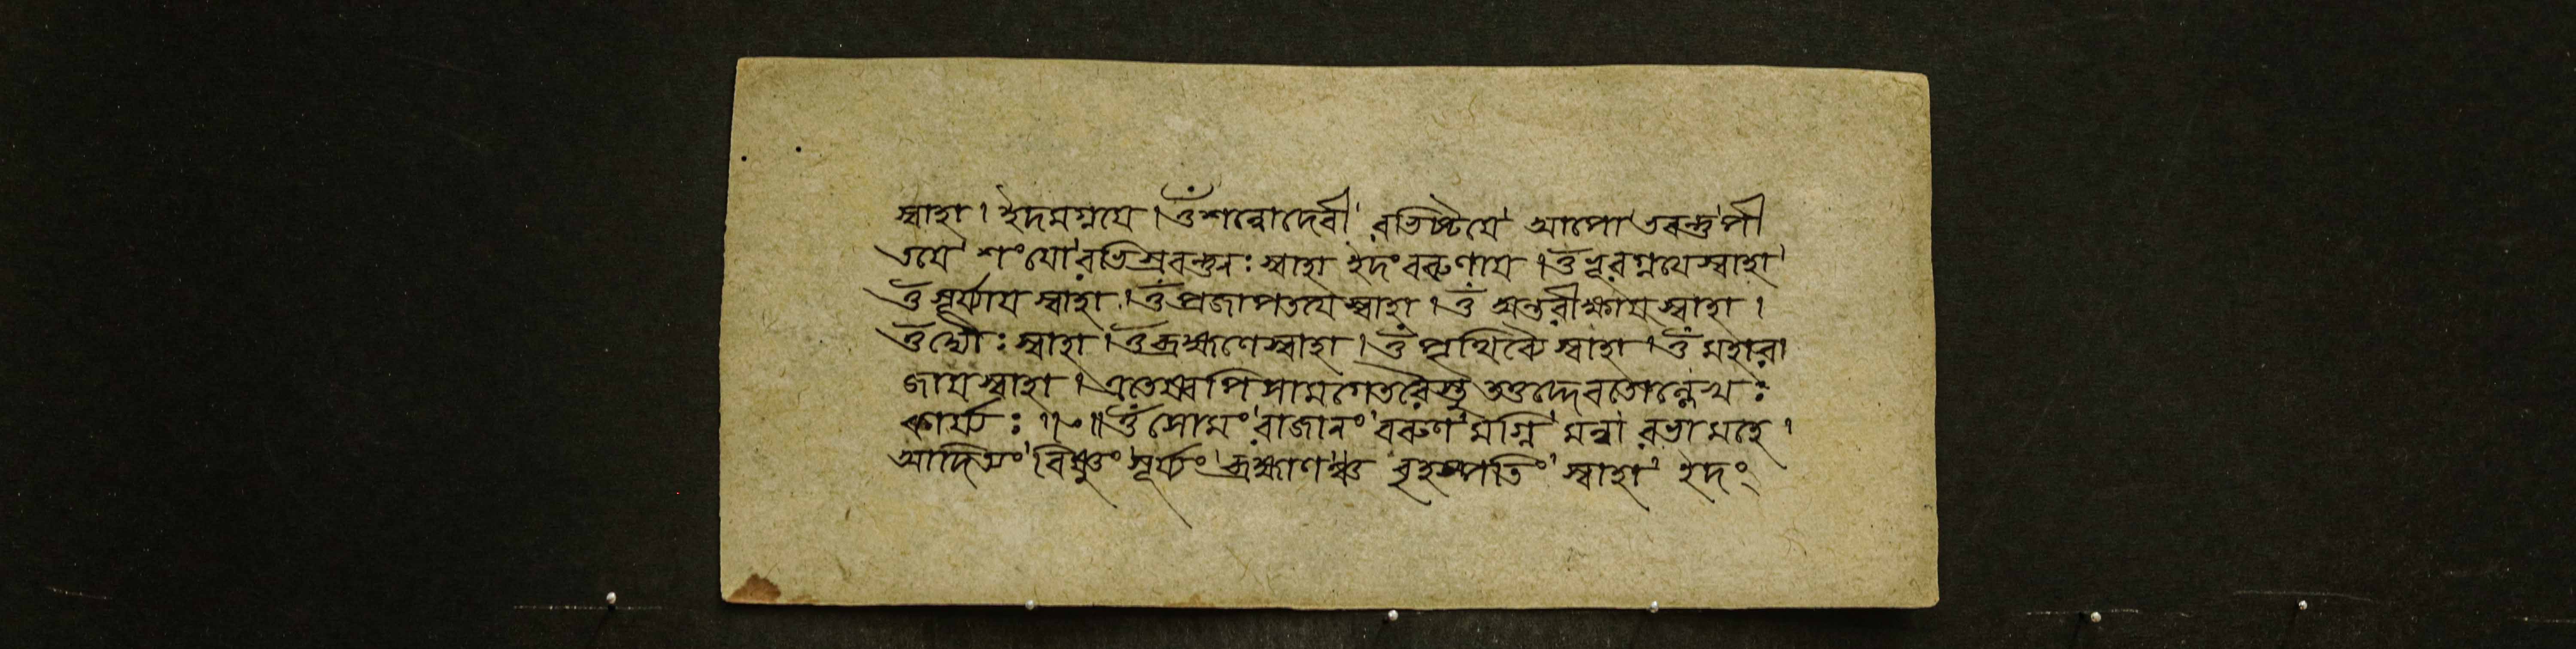 স্বাহা। ইদমগ্নয়ে। ওঁ শন্নোদেবী রভিষ্টয়ে আপো ভবন্তু পী
তয়ে শংযোরভিস্রবন্তুনঃ স্বাহা ইদং বরুণায়। ওঁ ভূরগ্নয়েস্বাহা
ওঁ সূর্য্যায় স্বাহা। ওঁ প্রজাপতয়ে স্বাহা। ওঁ অন্তরীক্ষায় স্বাহা।
ওঁ দ্যৌঃ স্বাহা। ওঁ ব্রহ্মণেস্বাহা। ওঁ পৃথিব্যৈ স্বাহা। ওঁ মহারা
জায় স্বাহা। এতেষ্বপি সামগেতরৈস্তু তত্তদ্দেবতোল্লেখঃ
কার্য্যঃ॥ ॥ ওঁ সোমং রাজানং বরুণমগ্নি মন্বারভামহে।
আদিত্যং বিষ্ণুং সূর্য্যং ব্রহ্মাণঞ্চ বৃহস্পতিং স্বাহা ইদং